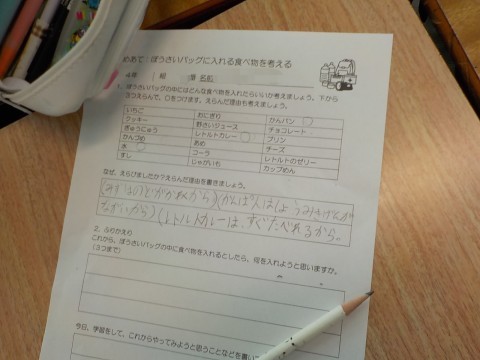 めあて:ぼうさいバッグに入れる食べ物を考える
4年 組 番 名前
1、ぼうさいバッグの中にはどんな食べ物を入れたらいいか考えましょう。下から
3つえらんで、○をつけます。えらんだ理由も考えましょう。
いちご おにぎり かんパン
クッキー 野さいジュース チョコレート
ぎゅうにゅう レトルトカレー プリン
かんづめ あめ チーズ
水 コーラ レトルトのゼリー
すし じゃがいも カップめん
なぜ、えらびましたか?えらんだ理由を書きましょう。
(みずはのどがかわくから)(かんぱんはしょうみきげんが
ながいから)(レトルトカレーは、すぐたべれるから。
2、ふりかえり
これから、ぼうさいバッグの中に食べ物を入れるとしたら、何を入れようと思いますか。
(3つまで)
今日、学習をして、これからやってみようと思うことなどを書